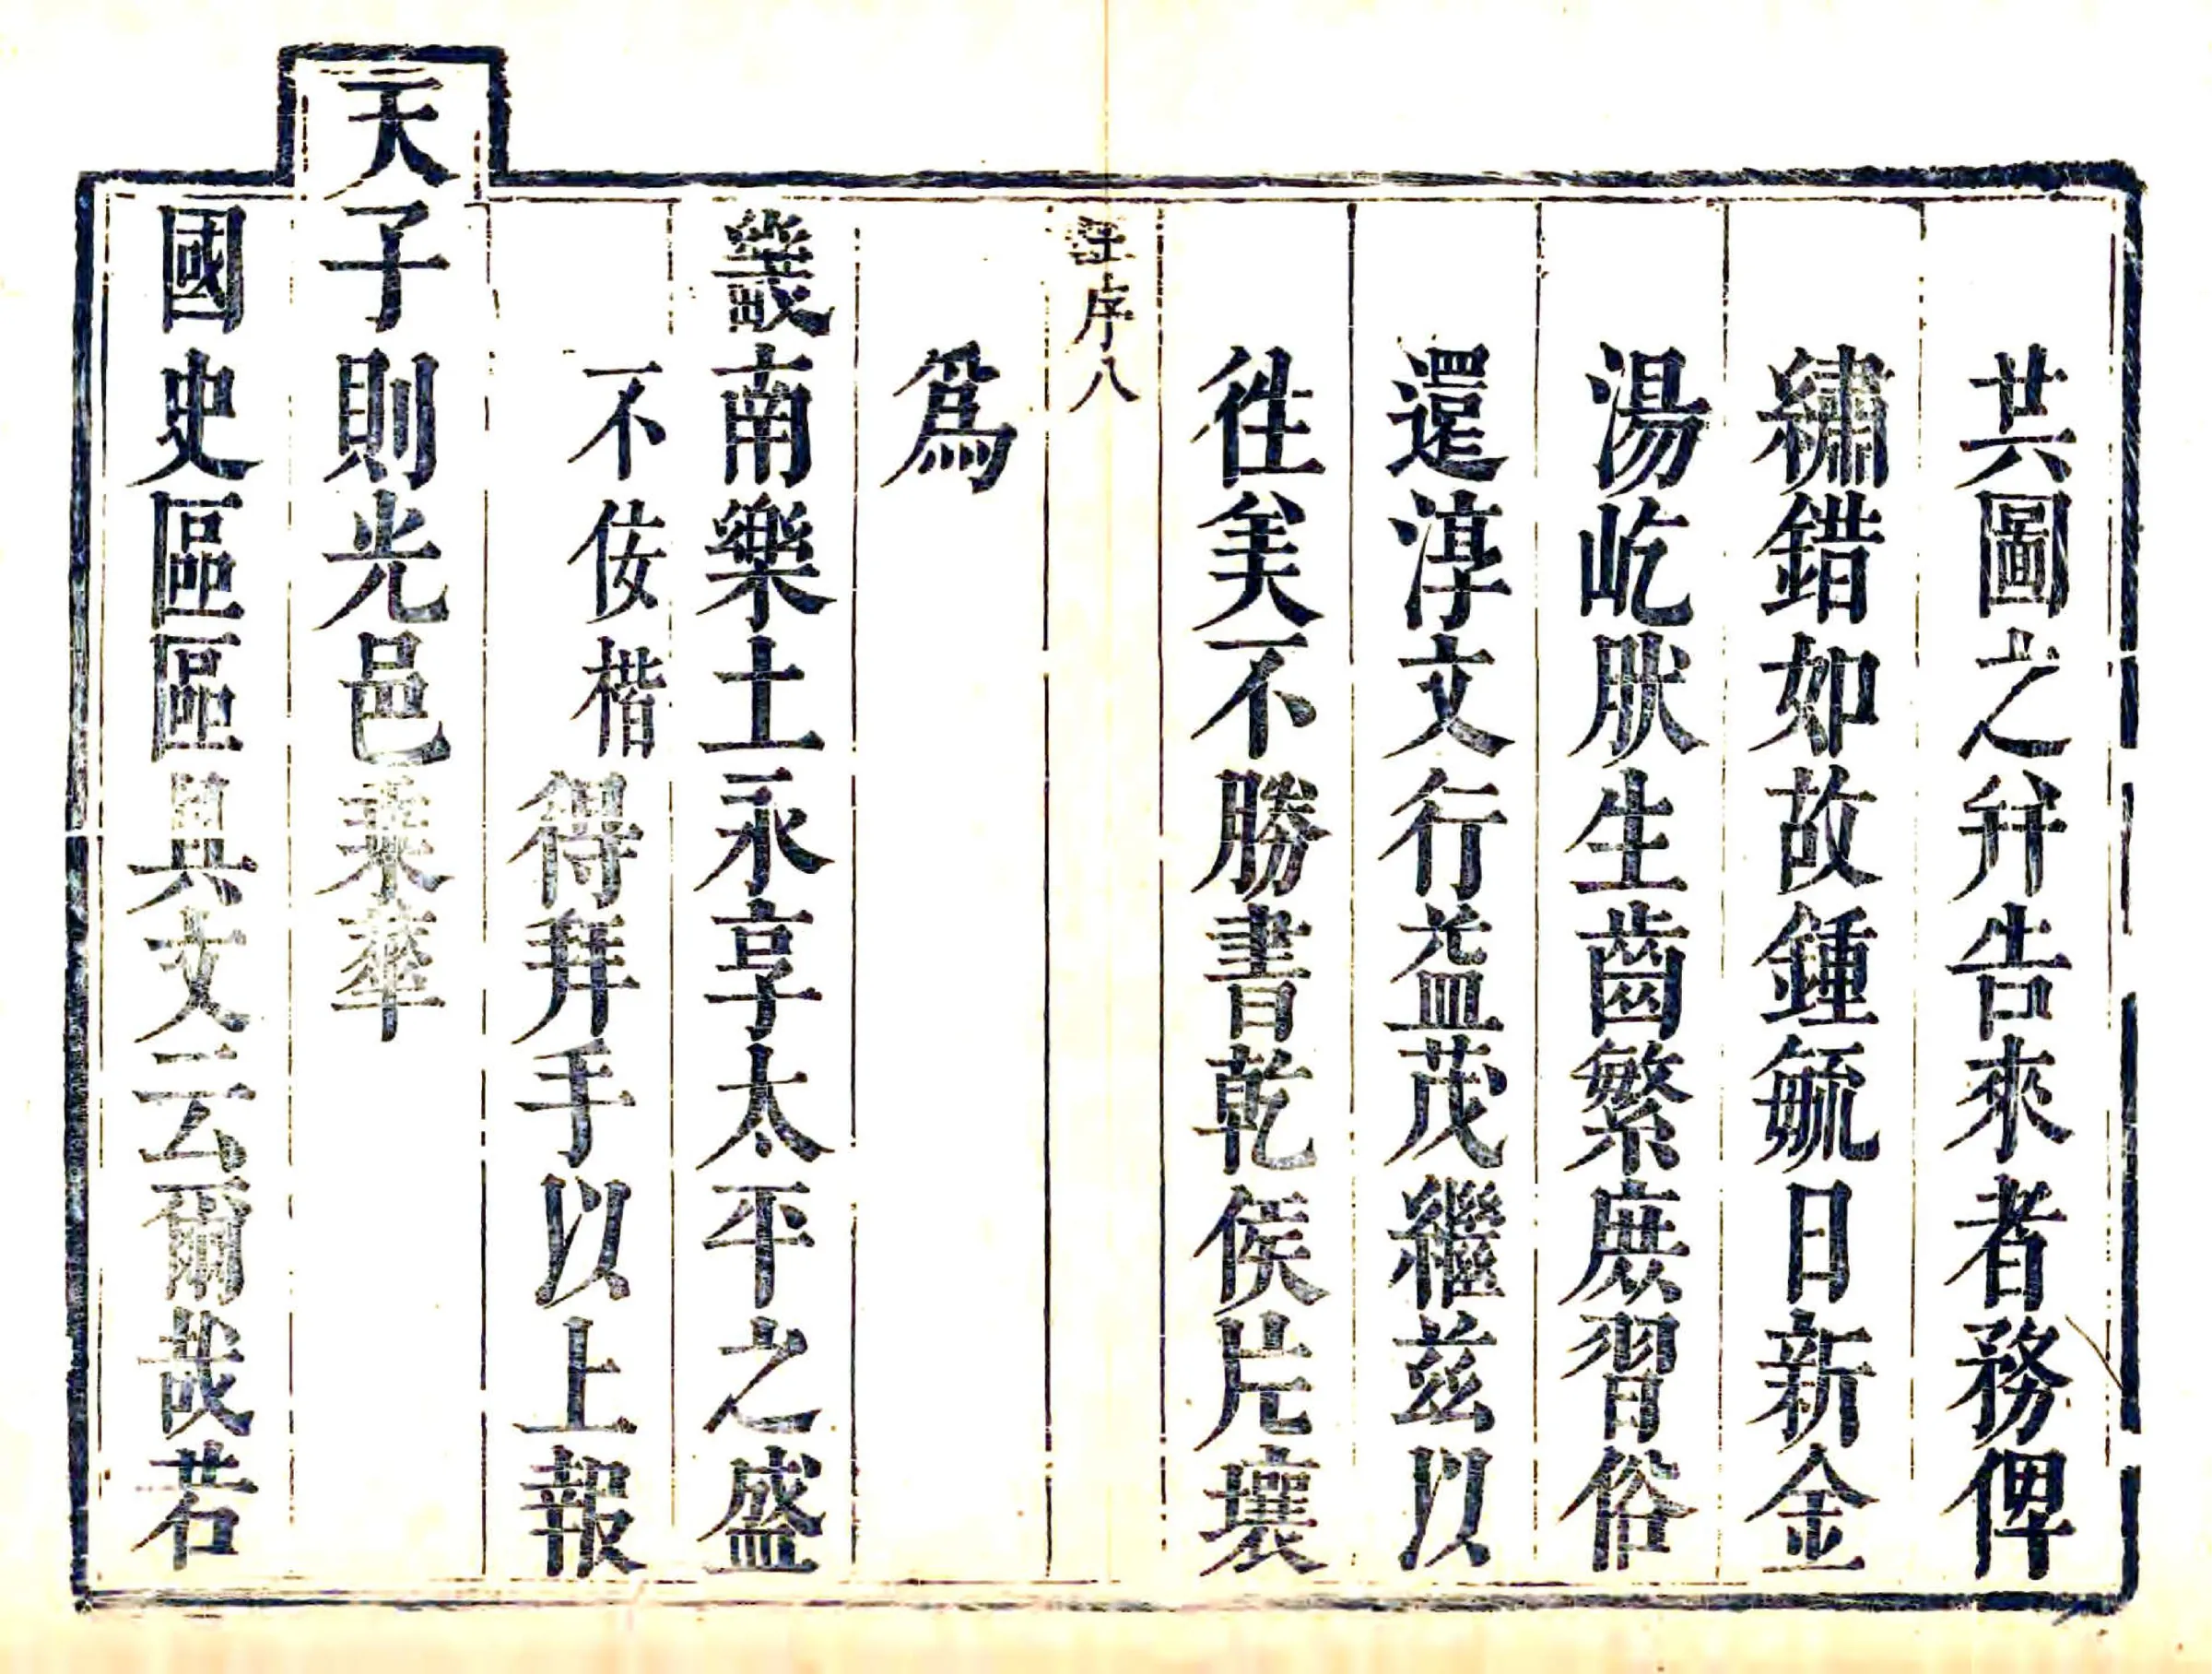 共圖之幷告來者務俾
繡錯如故鍾毓日新金
湯屹肰生齒繁庶習俗
還淳文行益茂繼兹以
徃美不勝書乾侯片壤
序八
爲
畿南樂土永享太平之盛
不佞楷得拜手以上報
天子則光邑乘華
國史區區具文云爾哉若